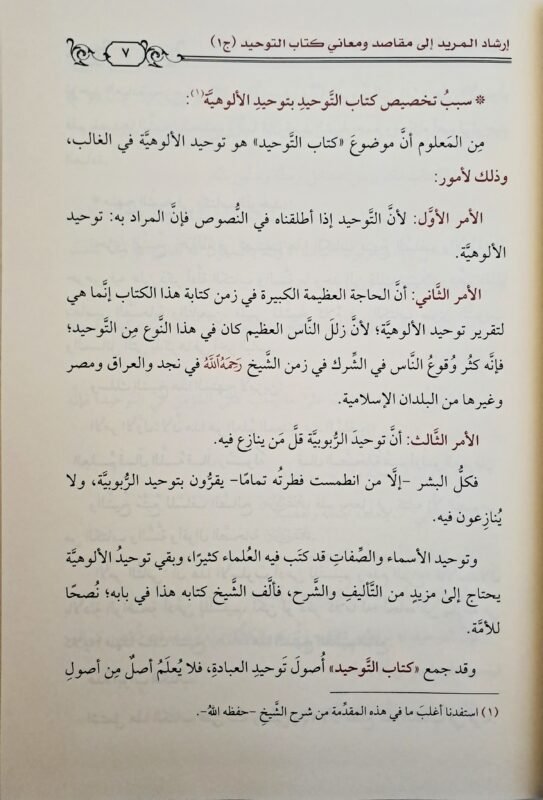 إرشاد المريد إلى مقاصد ومعاني كتاب التوحيد (ج١)
٧
* سببُ تخصيص كتاب التَّوحيدِ بتوحيدِ الألوهيَّة(١):
مِن المَعلوم أنَّ موضوعَ «كتاب التَّوحيد» هو توحيد الألوهيَّة في الغالب،
وذلك لأمور:
الأمر الأوَّل: لأنَّ التَّوحيد إذا أطلقناه في النُّصوص فإنَّ المراد به: توحيد
الألوهيَّة.
الأمر الثَّاني: أنَّ الحاجة العظيمة الكبيرة في زمن كتابة هذا الكتاب إنَّما هي
لتقرير توحيد الألوهيَّة؛ لأنَّ زللَ النَّاس العظيم كان في هذا النَّوع مِن التَّوحيد؛
فإنَّه كثُر وُقوعُ النَّاس في الشِّرك في زمن الشَّيخ رَحِمَهُ اللَّهُ في نجد والعراق ومصر
وغيرها من البلدان الإسلامية.
الأمر الثَّالث: أنَّ توحيدَ الرُّبوبيَّة قلَّ مَن ينازِع فيه.
فكلُّ البشر -إلَّا من انطمست فطرتُه تمامًا- يقرُّون بتوحيد الربوبيَّة، ولا
يُنازِعون فيه.
وتوحيد الأسماء والصِّفاتِ قد كتَب فيه العُلماء كثيرًا، وبقي توحيدُ الألوهيَّة
يحتاج إلىٰ مزيدٍ من التَّأليفِ والشَّرح، فألَّف الشَّيخ كتابه هذا في بابه؛ نُصحًا
للأمَّة.
وقد جمع «كتاب التَّوحيد» أُصولَ تَوحيدِ العبادةِ، فلا يُعلَمُ أصلٌ مِن أصولِ
(١) استفدنا أغلبَ ما في هذه المقدِّمة من شرح الشَّيخِ -حفظه اللهُ-.